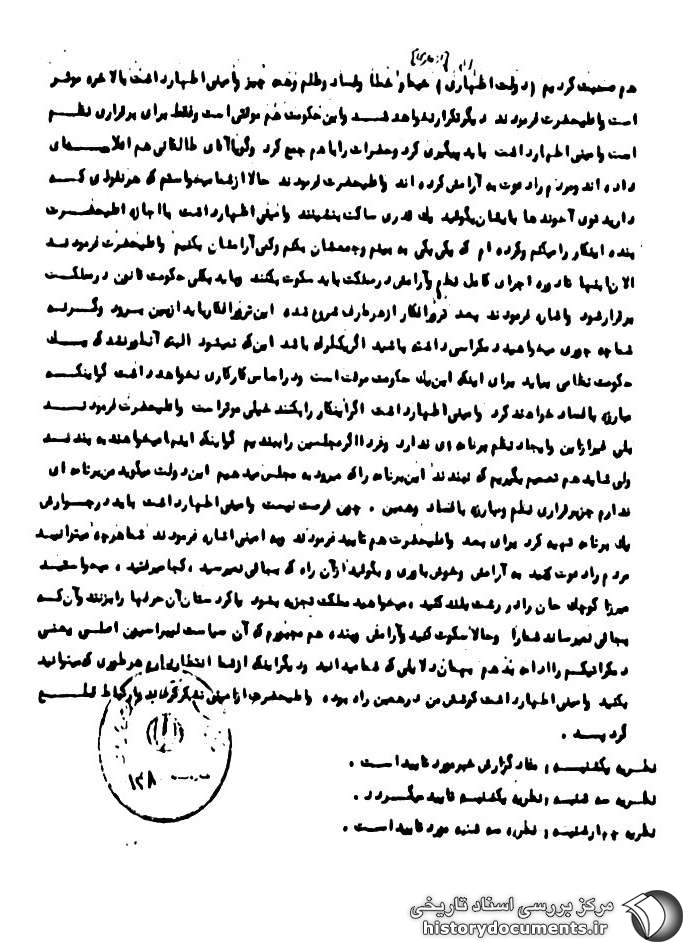 هم صحبت کردیم (دولت اظهاری) خطا و فساد و ظلم و همه چیز وامینی اظهارداشت بالاخره موثر
است واعلیحضرت فرمودند دیگر تکرار نخواهد شد واین حکومت هم موقتی است وفقط برای برقراری نظم
است وامینی اظهارداشت باید پیگیری کرد وحضرات را با هم جمع کرد وگویا آقای طالقانی هم اعلامیه‌های
داده اند ومردم را دعوت به آرامش کرده اند واعلیحضرت فرمودند حالا از شما میخواستم که هر نفوذی که
دارید توی آخوندها بایشان بگوئید یک قدری ساکت بنشینند وامینی اظهارداشت با اجازه اعلیحضرت
بنده اینکار را میکنم وکرده ام که یکی یکی به بینم وجمعشان بکنم وکمی آرامشان بکنیم واعلیحضرت فرمودند
الان اینها تا دوره اجرای کامل نظم وآرامش در مملکت باید سکوت بکنند وباید بکلی حکومت قانون در مملکت
برقرار شود وایشان فرمودند بعد ترور افکار از هر طرف شروع شده این ترور افکار باید از بین برود وگرنه
شما چه جوری میخواهید دمکراسی داشته باشید اگر یکطرف باشد این که نمیشود البته آنطور نشد که یک
حکومت نظامی بیاید برای اینکه این یک حکومت موقت است ودر اساس کار کاری نخواهد داشت گو اینکه
مبارزه با فساد خواهند کرد وامینی اظهارداشت اگر اینکار را بکنند خیلی موثر است واعلیحضرت فرمودند
بلی غیر از این وایجاد نظم برنامه ای ندارد وفردا اگر مجلسین را ببندیم گو اینکه اینها میخواهند به بندند
ولی شاید هم تصمیم بگیریم که نبندند این برنامه را که میرود به مجلس میدهیم این دولت میگوید من برنامه ای
ندارم جز برقراری نظم ومبارزه با فساد وهمین . چون فرصت نیست وامینی اظهارداشت باید در جوارش
یک برنامه تهیه کرد برای بعد واعلیحضرت هم تایید فرمودند وبه امینی اشاره فرمودند شما هرچه میتوانید
مردم را دعوت کنید به آرامش وخوش باوری و بگوئید از آن راه که بجائی نمیرسید ، کجا میرفتید ، میخواستید
میرزا کوچک خان را در رشت بلند کنید ، میخواهید مملکت تجزیه بشود یا کردستان آن حرفها را بزنند وآن که
بجائی نمیرساند شما را وحالا سکوت کنید وآرامش وبنده هم مجبورم که آن سیاست لیبراسیون اصلی یعنی
دمکراتیکم را ادامه بدهم بهمان دلایلی که شما میدانید ودیگر اینکه از شما انتظار داریم هر طوری که میتوانید
بکنید وامینی اظهارداشت کوشش من در همین راه بوده واعلیحضرت از امینی تشکر کردند و ارتباط قطع
گردید .
نظریه یکشنبه ، مفاد گزارش خبر مورد تایید است .
نظریه سه شنبه ، نظریه یکشنبه تایید میگردد .
نظریه چهارشنبه ، نظریه سه شنبه مورد تایید است .
۱۲۸
مرکز بررسی اسناد تاریخی
historydocuments.ir